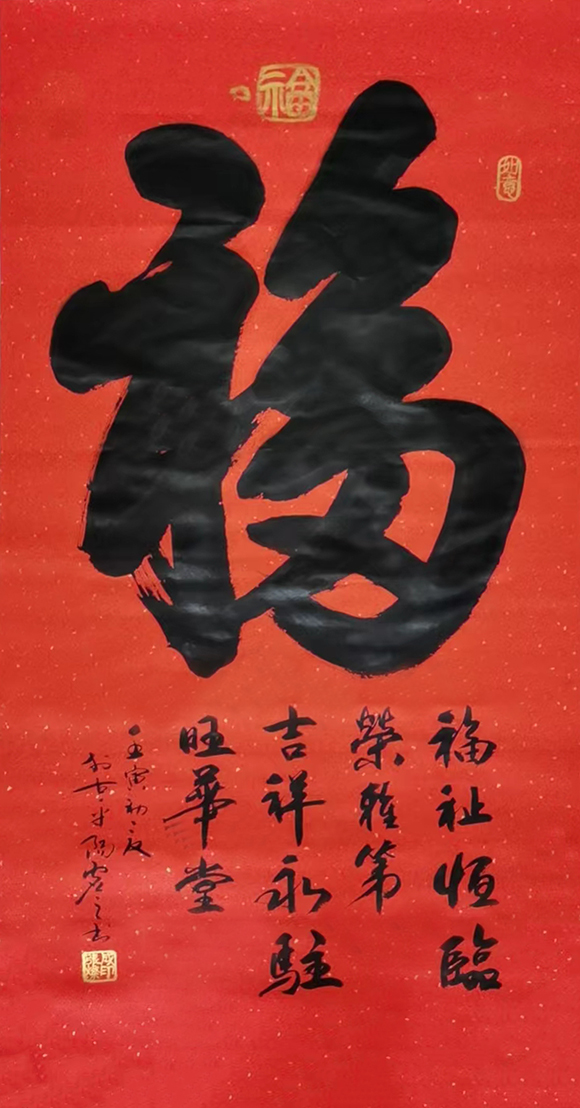 福
福
如意
福祉恒臨
榮雅第
吉祥永駐
旺華堂
壬寅初夏